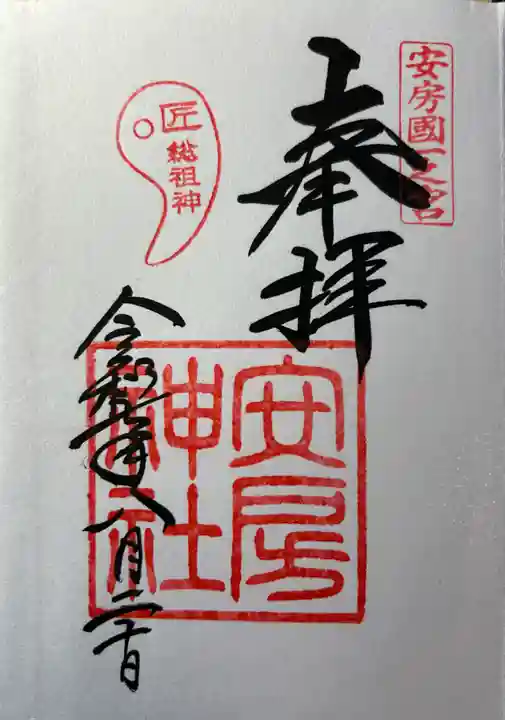 安房國一之宮
奉拝
安房神社
匠
総祖神
令和年八月二十日